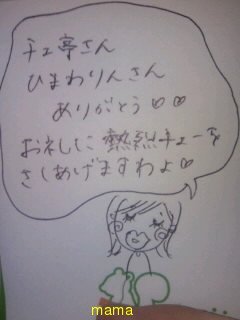 チェ亭さん
ひまわりんさん
ありがとう♡♡
お礼に熱烈チューを
さしあげますわよ♡
mama